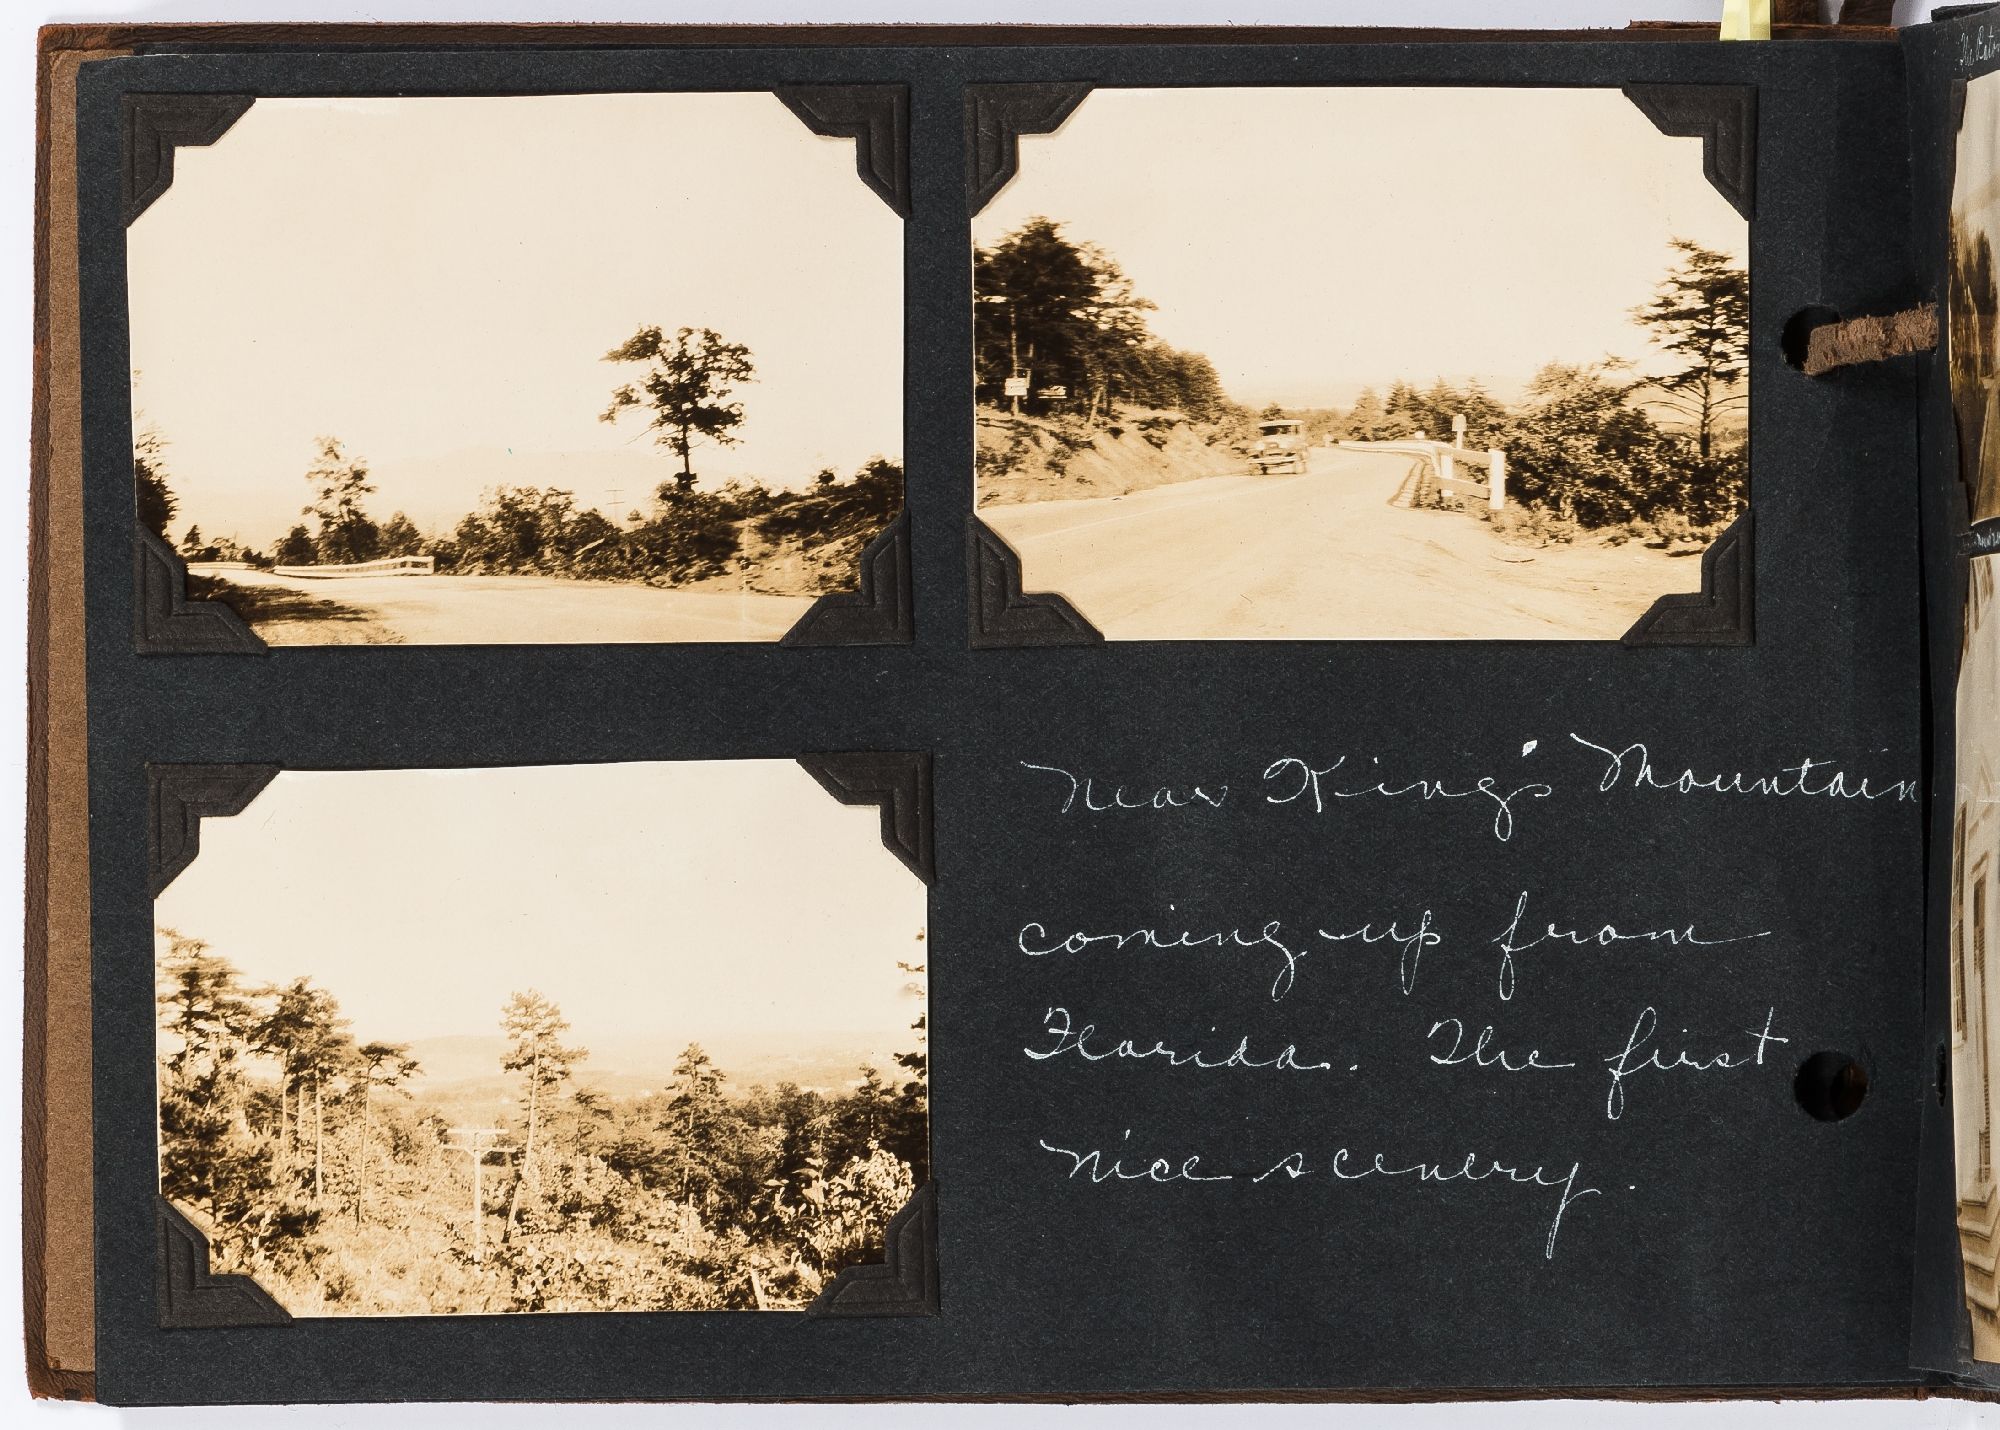 Near King's Mountain
coming up from
Florida. The first
nice scenery.